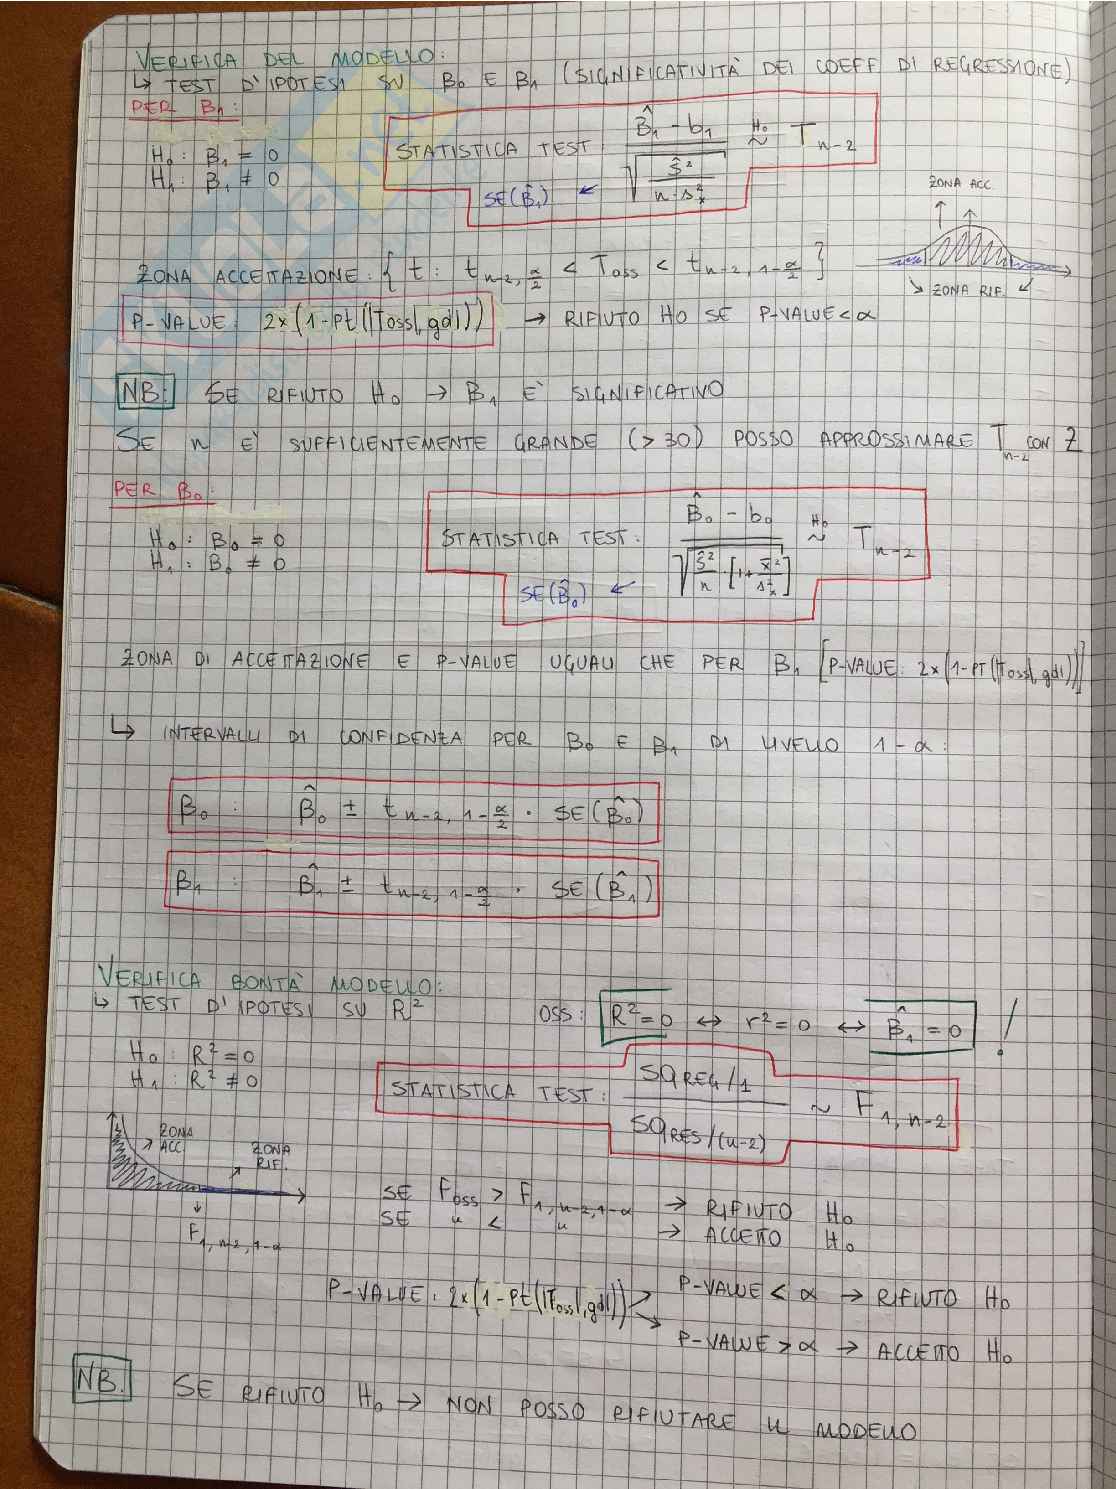 VERIFICA DEL MODELLO:
↳ TEST D'IPOTESI SU B₀ E B₁ (SIGNIFICATIVITÀ DEI COEFF DI REGRESSIONE)
PER B₁:
H₀: B₁ = 0
H₁: B₁ ≠ 0
STATISTICA TEST (B̂₁ - b₁) / √(ŝ² / (n·s²ₓ)) ~ᴴ⁰ T n-2
SE(B̂₁) ←
ZONA ACC.
ZONA ACCETTAZIONE: { t: t n-2, α/2 < Toss < t n-2, 1-α/2 }
ZONA RIF.
P-VALUE: 2×(1-pt(|Toss|,gdl)) → RIFIUTO H0 SE P-VALUE<α
NB: SE RIFIUTO H₀ → B₁ E' SIGNIFICATIVO
SE n E' SUFFICIENTEMENTE GRANDE (>30) POSSO APPROSSIMARE T n-2 CON Z
PER B₀:
H₀: B₀ = 0
H₁: B₀ ≠ 0
STATISTICA TEST: (B̂₀ - b₀) / √(ŝ²/n · [1+ x̄²/s²ₓ]) ~ᴴ⁰ T n-2
SE(B̂₀) ←
ZONA DI ACCETTAZIONE E P-VALUE UGUALI CHE PER B₁ [P-VALUE: 2×(1-PT(|Toss|,gdl))]
↳ INTERVALLI DI CONFIDENZA PER B₀ E B₁ DI LIVELLO 1-α:
β₀ : B̂₀ ± t n-2, 1-α/2 · SE(B̂₀)
β₁ : B̂₁ ± t n-2, 1-α/2 · SE(B̂₁)
VERIFICA BONTÀ MODELLO:
↳ TEST D'IPOTESI SU R²
OSS: R²=0 ↔ r²=0 ↔ B̂₁ = 0 !
H₀: R²=0
H₁: R²≠0
STATISTICA TEST: (SQREG/1) / (SQRES/(n-2)) ~ F 1, n-2
ZONA ACC.
ZONA RIF.
F 1, n-2, 1-α
SE Foss > F 1, n-2, 1-α → RIFIUTO H₀
SE " < " → ACCETTO H₀
P-VALUE: 2×(1-pt(|Foss|,gdl))
P-VALUE < α → RIFIUTO H₀
P-VALUE > α → ACCETTO H₀
NB. SE RIFIUTO H₀ → NON POSSO RIFIUTARE IL MODELLO